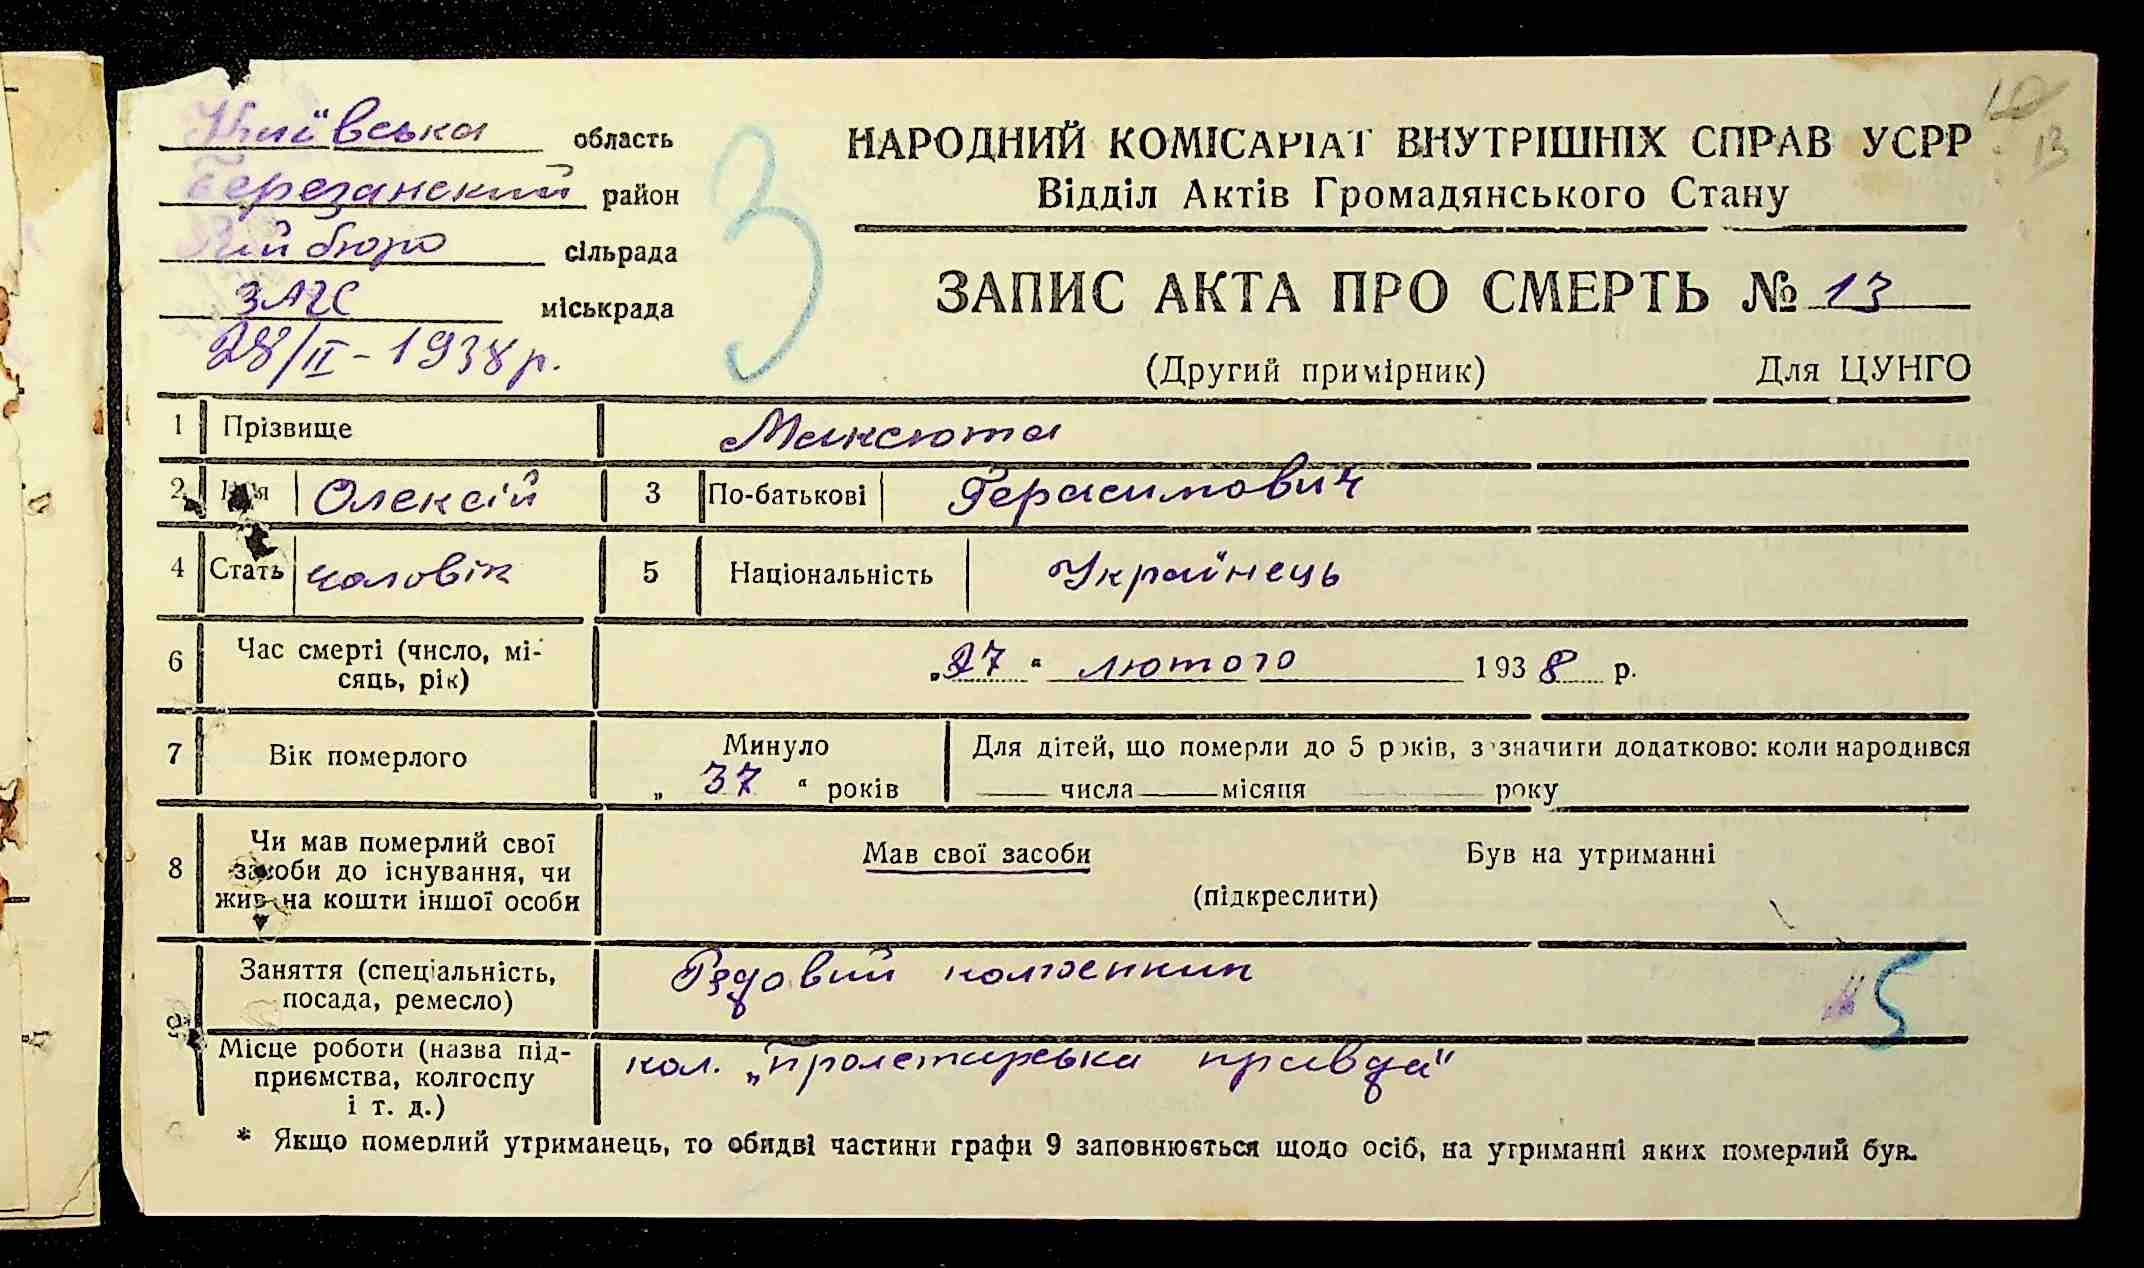 Київська область
Березанский район
бюро сільрада
ЗАГС міськрада
28/II - 1938 р.
3
НАРОДНИЙ КОМІСАРІАТ ВНУТРІШНІХ СПРАВ УСРР
Відділ Актів Громадянського Стану
ЗАПИС АКТА ПРО СМЕРТЬ № 13
(Другий примірник) Для ЦУНГО
13
1 Прізвище Максюта
2 Ім'я Олексій 3 По-батькові Герасимович
4 Стать чоловік 5 Національність Українець
6 Час смерті (число, мі-
сяць, рік) „27“ лютого 1938 р.
7 Вік померлого Минуло
„37“ років
Для дітей, що померли до 5 років, зазначити додатково: коли народився
числа місяця року
8 Чи мав померлий свої
засоби до існування, чи
жив на кошти іншої особи
Мав свої засоби Був на утриманні
(підкреслити)
9 Заняття (спеціальність,
посада, ремесло) Їздовий колгоспник
5
Місце роботи (назва під-
приємства, колгоспу
і т. д.) кол. „Пролетарська правда"
* Якщо померлий утриманець, то обидві частини графи 9 заповнюється щодо осіб, на утриманні яких померлий був.